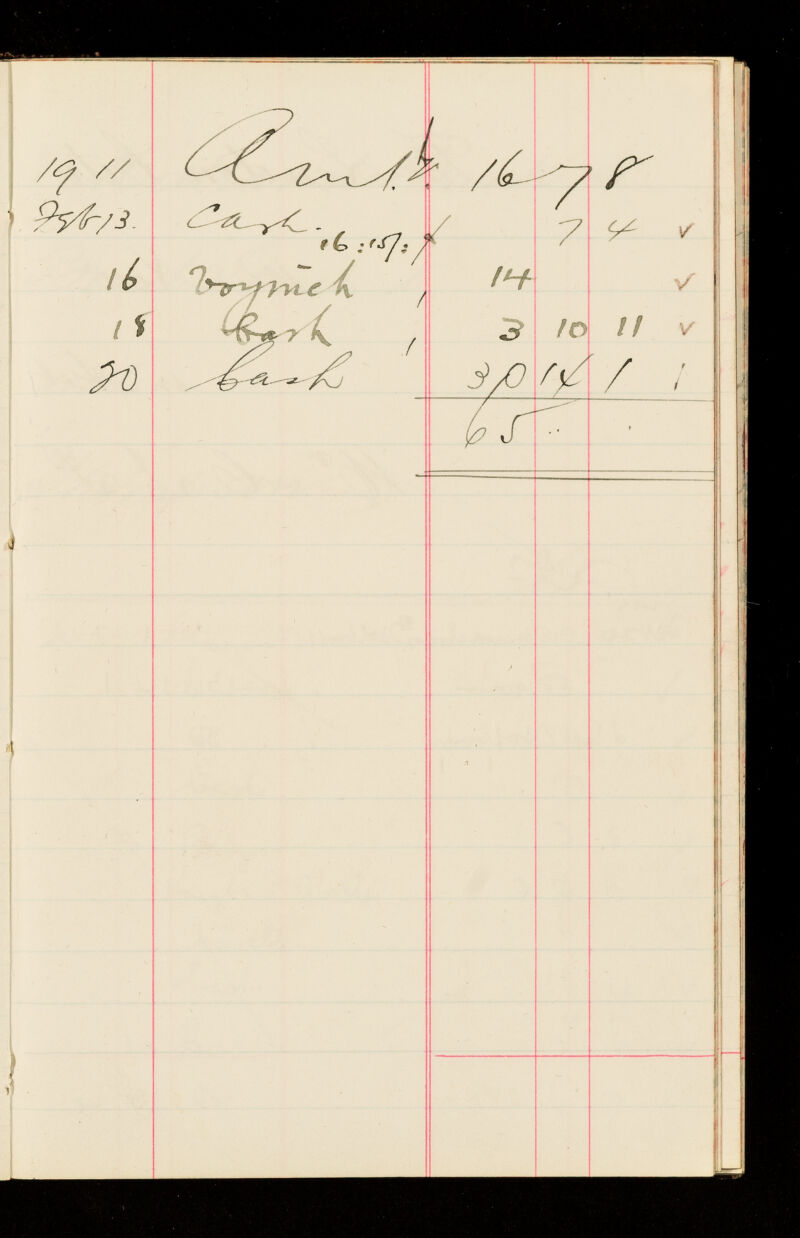 1911 Amt. 16 7 8
Feb 13. Cash. 7 4 ✓
16:15/:
16 Voynich , 14 ✓
18 Cash , 3 10 11 ✓
20 Cash 30 14 1
65 .. .